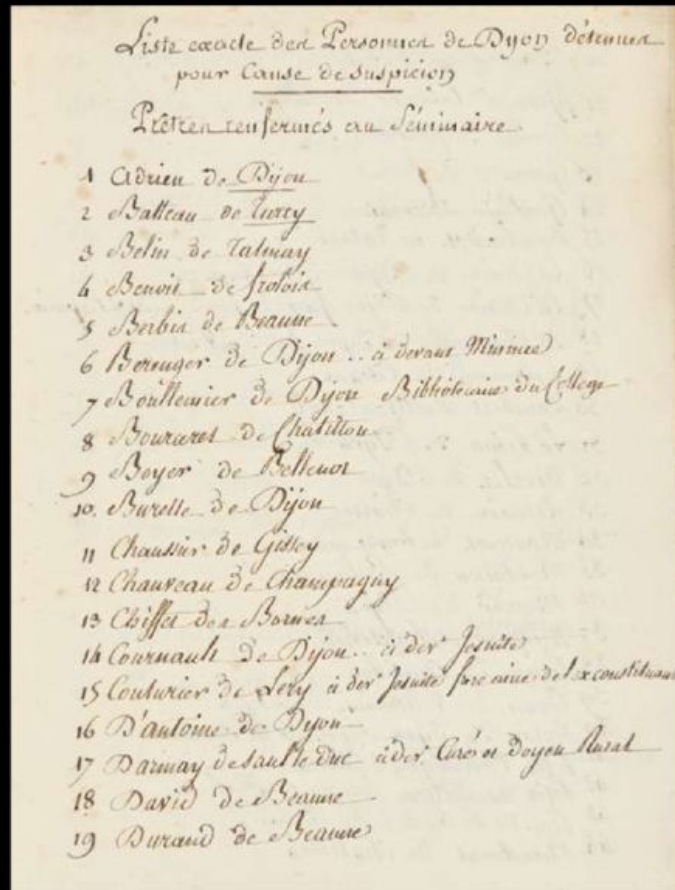 Liste exacte des Personnes de Dijon détenues
pour Cause de suspicion
Prêtres renfermés au Séminaire
1 Adrien de Dijon
2 Batteau de Turcy
3 Belin de Talmay
4 Benoit de frolois
5 Berbis de Beaune
6 Berenger de Dijon .. ci devant Minimes
7 Boullemier de Dijon Bibliotecaire du College
8 Bouraret de Chatillon
9 Boyer de Bellenot
10. Burette de Dijon
11 Chaussier de Gissey
12 Chauveau de Champagny
13 Chiffet des Bornes
14 Cournault de Dijon .. ci der Jesuite
15 Couturier de Lery ci der Jesuite frere ainé de l'exconstituant
16 D'antoine de Dijon
17 Darmay de sault le Duc ci der Curé et doyen Rural
18 David de Beaune
19 Durand de Beaune